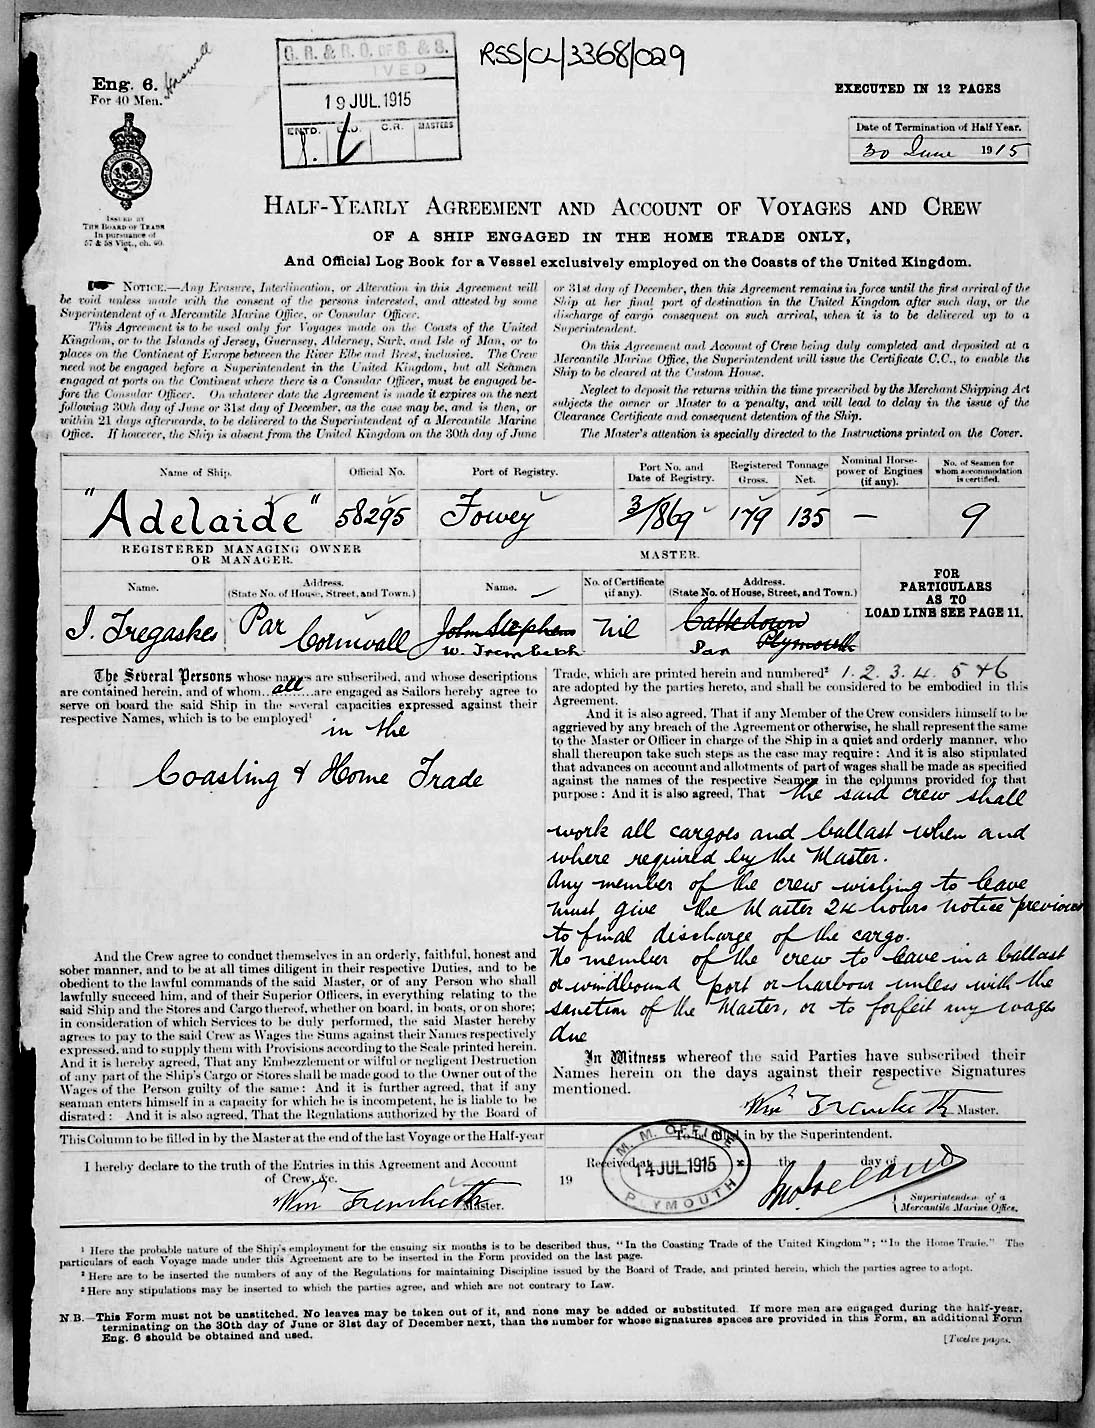 RSS/CL/3368/029
Eng. 6.
For 40 Men.
G. R. & R. O. OF S. & S.
IVED
19 JUL. 1915
ENTD.
C.R.
MASTERS
EXECUTED IN 12 PAGES
Date of Termination of Half Year.
30 June 1915
ISSUED BY
THE BOARD OF TRADE
In pursuance of
57 & 58 Vict., ch. 60.
HALF-YEARLY AGREEMENT AND ACCOUNT OF VOYAGES AND CREW
OF A SHIP ENGAGED IN THE HOME TRADE ONLY,
And Official Log Book for a Vessel exclusively employed on the Coasts of the United Kingdom.
NOTICE.—Any Erasure, Interlineation, or Alteration in this Agreement will
be void unless made with the consent of the persons interested, and attested by some
Superintendent of a Mercantile Marine Office, or Consular Officer.
This Agreement is to be used only for Voyages made on the Coasts of the United
Kingdom, or to the Islands of Jersey, Guernsey, Alderney, Sark, and Isle of Man, or to
places on the Continent of Europe between the River Elbe and Brest, inclusive. The Crew
need not be engaged before a Superintendent in the United Kingdom, but all Seamen
engaged at ports on the Continent where there is a Consular Officer, must be engaged be-
fore the Consular Officer. On whatever date the Agreement is made it expires on the next
following 30th day of June or 31st day of December, as the case may be, and is then, or
within 21 days afterwards, to be delivered to the Superintendent of a Mercantile Marine
Office. If however, the Ship is absent from the United Kingdom on the 30th day of June
or 31st day of December, then this Agreement remains in force until the first arrival of the
Ship at her final port of destination in the United Kingdom after such day, or the
discharge of cargo consequent on such arrival, when it is to be delivered up to a
Superintendent.
On this Agreement and Account of Crew being duly completed and deposited at a
Mercantile Marine Office, the Superintendent will issue the Certificate C.C., to enable the
Ship to be cleared at the Custom House.
Neglect to deposit the returns within the time prescribed by the Merchant Shipping Act
subjects the owner or Master to a penalty, and will lead to delay in the issue of the
Clearance Certificate and consequent detention of the Ship.
The Master's attention is specially directed to the Instructions printed on the Cover.
Name of Ship. Official No. Port of Registry. Port No. and Date of Registry. Registered Tonnage Gross. Net. Nominal Horse-power of Engines (if any). No. of Seamen for whom accommodation is certified.
"Adelaide" 58295 Fowey 3/1869 179 135 — 9
REGISTERED MANAGING OWNER
OR MANAGER.
MASTER.
Name. Address. (State No. of House, Street, and Town.) Name. No. of Certificate (if any). Address. (State No. of House, Street, and Town.)
FOR
PARTICULARS
AS TO
LOAD LINE SEE PAGE 11.
J. Tregaskes Par Cornwall John Stephens Nil Cattedown Plymouth
W. Trembeth Par
The Several Persons whose names are subscribed, and whose descriptions
are contained herein, and of whom all are engaged as Sailors hereby agree to
serve on board the said Ship in the several capacities expressed against their
respective Names, which is to be employed¹
in the
Coasting & Home Trade
And the Crew agree to conduct themselves in an orderly, faithful, honest and
sober manner, and to be at all times diligent in their respective Duties, and to be
obedient to the lawful commands of the said Master, or of any Person who shall
lawfully succeed him, and of their Superior Officers, in everything relating to the
said Ship and the Stores and Cargo thereof, whether on board, in boats, or on shore;
in consideration of which Services to be duly performed, the said Master hereby
agrees to pay to the said Crew as Wages the Sums against their Names respectively
expressed, and to supply them with Provisions according to the Scale printed herein.
And it is hereby agreed, That any Embezzlement or wilful or negligent Destruction
of any part of the Ship's Cargo or Stores shall be made good to the Owner out of the
Wages of the Person guilty of the same: And it is further agreed, that if any
seaman enters himself in a capacity for which he is incompetent, he is liable to be
disrated: And it is also agreed, That the Regulations authorized by the Board of
Trade, which are printed herein and numbered² 1. 2. 3. 4. 5 & 6
are adopted by the parties hereto, and shall be considered to be embodied in this
Agreement.
And it is also agreed, That if any Member of the Crew considers himself to be
aggrieved by any breach of the Agreement or otherwise, he shall represent the same
to the Master or Officer in charge of the Ship in a quiet and orderly manner, who
shall thereupon take such steps as the case may require: And it is also stipulated
that advances on account and allotments of part of wages shall be made as specified
against the names of the respective Seamen in the columns provided for that
purpose: And it is also agreed, That the said crew shall
work all cargoes and ballast when and
where required by the Master.
Any member of the crew wishing to leave
must give the Master 24 hours notice previous
to final discharge of the cargo.
No member of the crew to leave in a ballast
or windbound port or harbour unless with the
sanction of the Master, or to forfeit any wages
due
In Witness whereof the said Parties have subscribed their
Names herein on the days against their respective Signatures
mentioned.
Wm Trembeth Master.
This Column to be filled in by the Master at the end of the last Voyage or the Half-year
I hereby declare to the truth of the Entries in this Agreement and Account
of Crew, &c.
Wm Trembeth Master.
To be filled in by the Superintendent.
Received at the day of
19
M. M. OFFICE
14 JUL 1915
PLYMOUTH
Superintendent of a
Mercantile Marine Office.
¹ Here the probable nature of the Ship's employment for the ensuing six months is to be described thus, "In the Coasting Trade of the United Kingdom"; "In the Home Trade." The
particulars of each Voyage made under this Agreement are to be inserted in the Form provided on the last page.
² Here are to be inserted the numbers of any of the Regulations for maintaining Discipline issued by the Board of Trade, and printed herein, which the parties agree to adopt.
³ Here any stipulations may be inserted to which the parties agree, and which are not contrary to Law.
N.B.—This Form must not be unstitched. No leaves may be taken out of it, and none may be added or substituted. If more men are engaged during the half-year,
terminating on the 30th day of June or 31st day of December next, than the number for whose signatures spaces are provided in this Form, an additional Form
Eng. 6 should be obtained and used.
[Twelve pages.